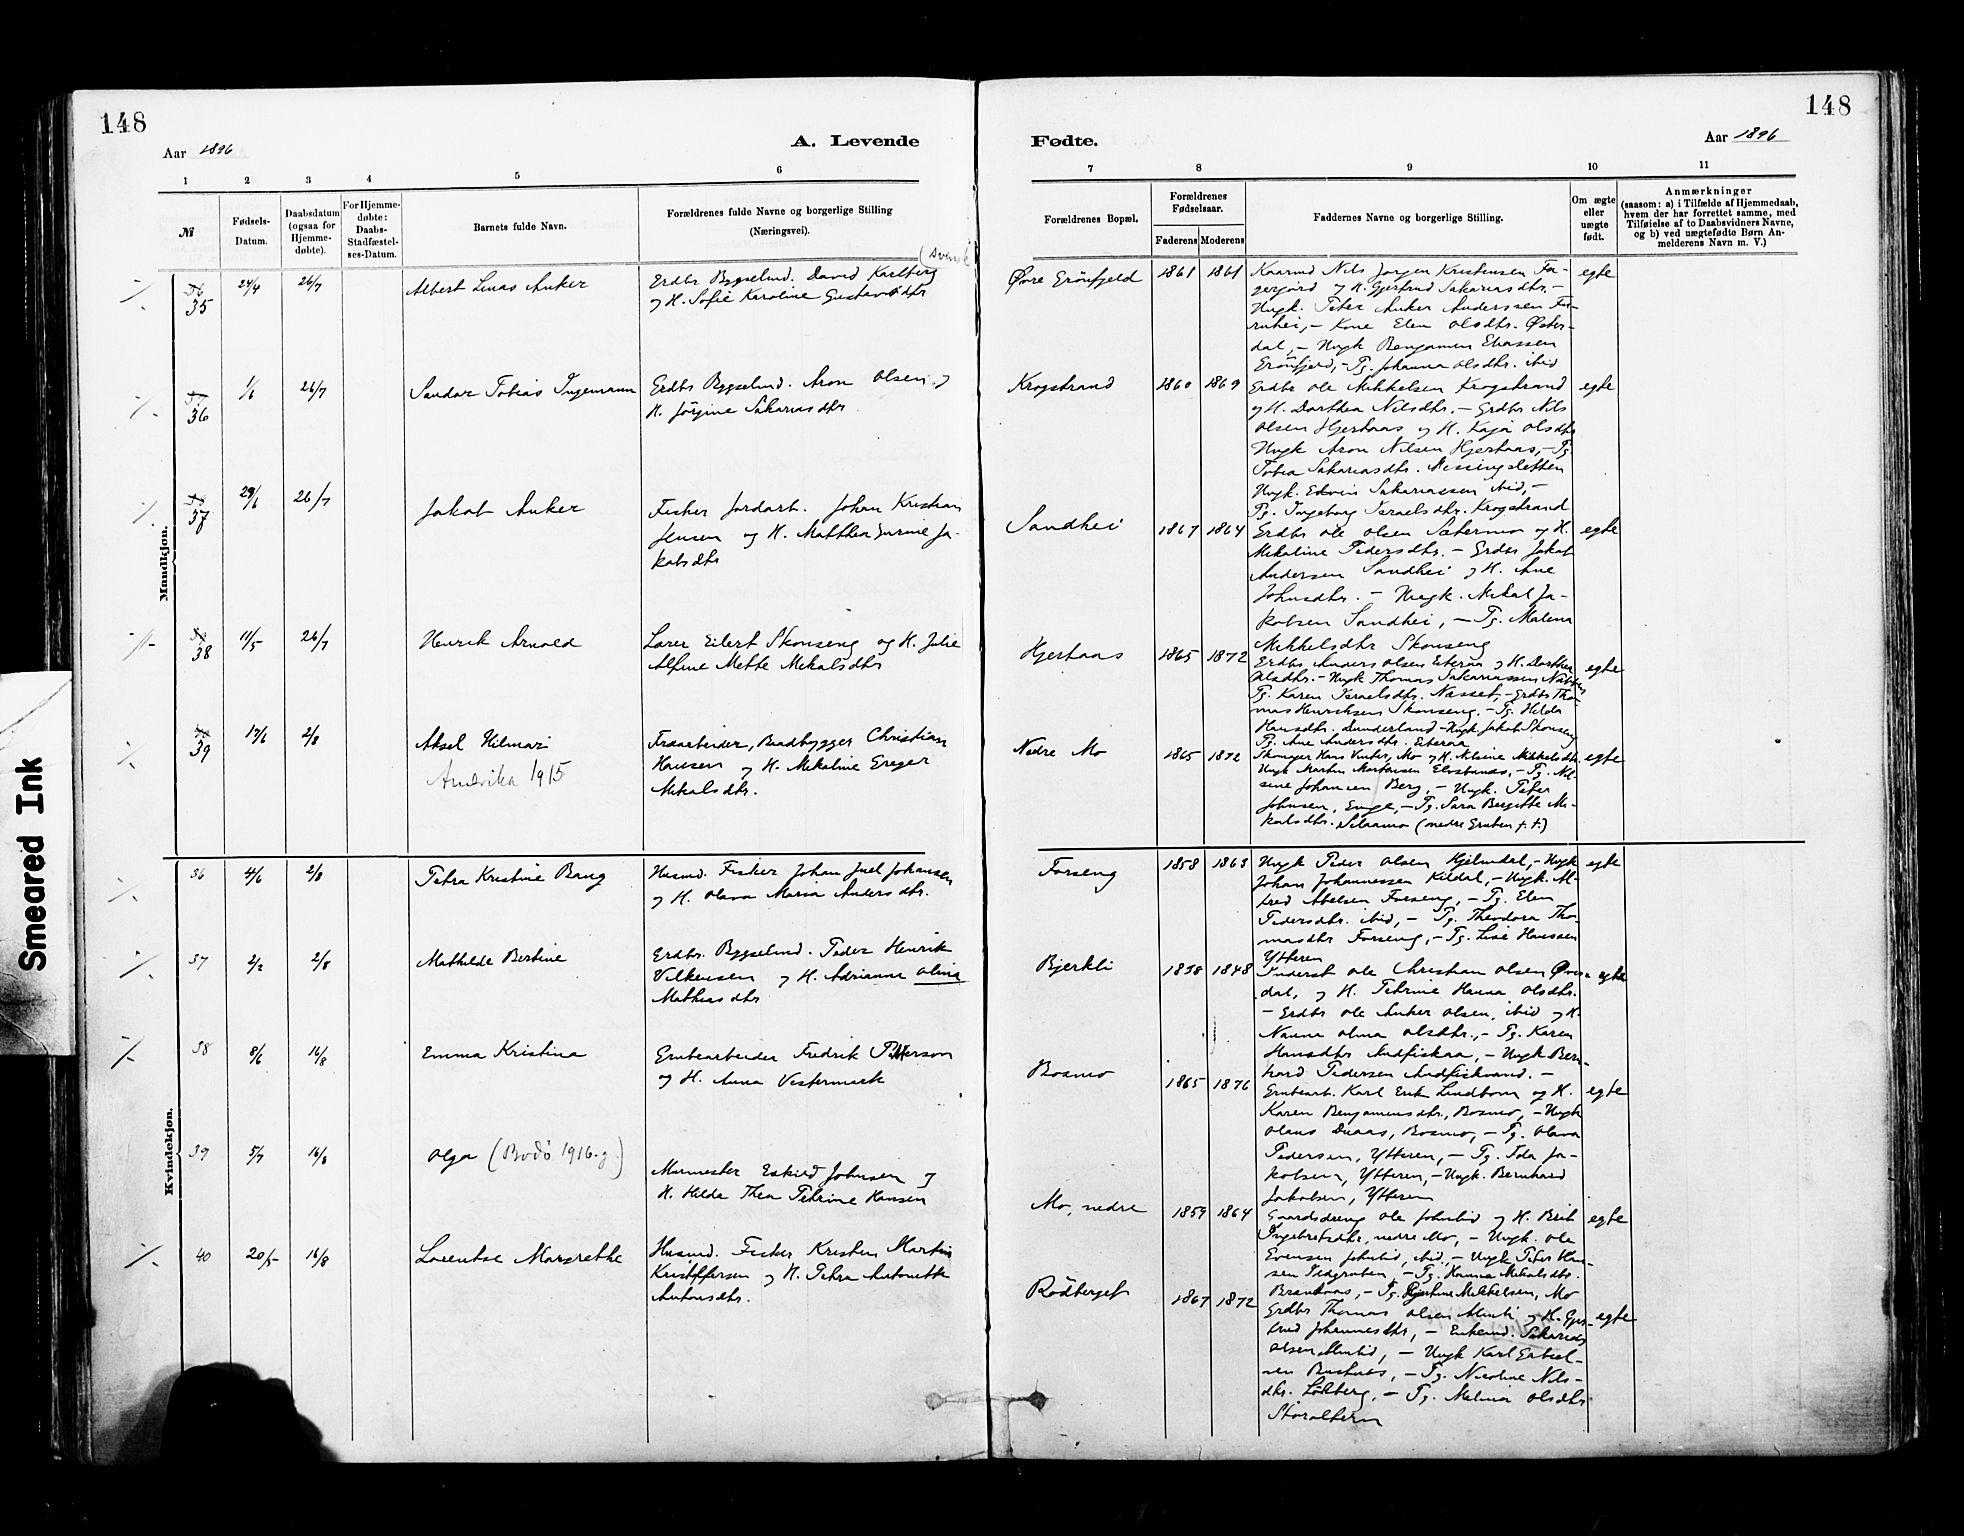 148
148
Aar 1896
A. Levende
Fødte.
Aar 1896
1 2 3 4 5 6
7 8 9 10 11
№
Fødsels-
Datum.
Daabsdatum
(ogsaa for
Hjemme-
døbte).
For Hjemme-
døbte:
Daabs-
Stadfæstel-
ses-Datum.
Barnets fulde Navn.
Forældrenes fulde Navne og borgerlige Stilling
(Næringsvei).
Forældrenes Bopæl.
Forældrenes
Fødselsaar.
Faderens Moderens
Faddernes Navne og borgerlige Stilling.
Om ægte
eller
uægte
født.
Anmærkninger
(saasom: a) i Tilfælde af Hjemmedaab,
hvem der har forrettet samme, med
Tilføielse af to Daabsvidners Navne,
og b) ved uægtefødte Børn An-
melderens Navn m. V.)
Mandkjøn.
35 24/4 26/7 Albert Linas Anker
(svensk
Erdbr Bygselmd. David Karlberg
og H. Sofie Karoline Gustavsdtr
Øvre Grönfjeld 1861 1861
Kaarmd Nils Jørgen Kristensen
og H. Gjertrud Sakariasdtr. –
Ungk. Peter Anker Anderssen
– Kone Elen Olsdtr. Øster-
dal, – Ungk Benjamin Eliassen
Grönfjeld, – Pg. Johanna Olsdtr. ibid
egte
36 1/6 26/7 Sandor Tobias Ingemann
Erdbr Bygselmd. Aron Olsen og
H. Jörgine Sakariasdtr
Krogstrand 1860 1869
Erdbr Ole Mikkelsen Krogstrand
og H. Dorthea Nilsdtr. – Erdbr Nils
Olsen Hjertaas og H. Kaja Olsdtr
Ungk Aron Nilsen Hjertaas, – Pg.
Tobia Sakariasdtr. Messingsletten
Ungk. Edvin Sakariassen ibid, –
Pg. Ingeborg Israelsdtr. Krogstrand
egte
37 29/6 26/7 Jakob Anker
Fisker Jordarb. Johan Kristian
Jensen og H. Matthea Gurine Ja-
kobsdtr
Sandhei 1867 1864
Erdbr Ole Olsen Sætermo og H.
Mekaline Pedersdtr. – Erdbr Jakob
Andersen Sandhei og H. Ane
Johnsdtr. – Ungk. Mikal Ja-
kobsen Sandhei, – Pg. Malena
Mikkelsdtr Skonseng
egte
38 11/5 26/7 Henrik Arnold
Lærer Eilert Skonseng og H. Julie
Alfine Mette Mekalsdtr
Hjertaas 1865 1872
Erdbr Anders Olsen Eiteraa og H. Dorthea
Olsdtr. – Ungk Thomas Sakariassen
Pg. Karen Israelsdtr. Næsset, – Erdbr Tho-
mas Henriksen Skonseng. – Pg. Hilda
Hansdtr. Dunderland – Ungk. Jakob Skonseng
Pg. Ane Andersdtr. Eiteraa
egte
39 17/6 2/8 Aksel Hilmar
Amerika 1915
Fredarbeider, Baadbygger Christian
Hansen og H. Mekaline Greger
Mekalsdtr.
Nedre Mo 1865 1872
Skomager Hans Vinter, Mo og H. Nilsine Mikkelsdtr
Ungk Martin Mortensen – Pg. Nil-
sine Johansen Berg, – Ungk. Peter
Johnsen, Enge, – Pg. Sara Bergitte Me-
kalsdtr. Selaamo (nedre Gruben f. t.)
egte
Kvindekjøn.
36 4/6 2/8 Petra Kristine Bang
Husmd. Fisker Johan Juel Johansen
og H. Olava Maria Andersdtr.
Forseng 1858 1863
Ungk Peder Olsen Hjelmdal, – Ungk
Johan Johannessen Kildal, – Ungk. Al-
fred Abelsen Forseng, – Pg. Elen
Pedersdtr. ibid, – Pg. Theodora Tho-
masdtr Forseng, – Pg. Lise Hanssen
Ytteren
egte
37 2/2 2/8 Mathilde Bertine
Erdbr. Bygselmd. Peder Henrik
Vilkensen og H. Adrianna Olina
Mathiasdtr
Bjerkli 1838 1848
Inderst Ole Christian Olsen
dal, og H. Petrine Hanna Olsdtr.
– Erdbr Ole Anker Olsen, ibid og H.
Nanna Olma Olsdtr., – Pg. Karen
Hansdtr Andfiskaa, – Ungk Bern-
hard Pedersen Andfiskvand. –
egte
38 8/6 16/8 Emma Kristina
Grubearbeider Fredrik Petterson
og H. Anna Vestermark
Bosmo 1865 1876
Grubearb. Karl Erik Lindbom og H.
Karen Benjaminsdtr., Bosmo, – Ungk
Olaus Duaas, Bosmo, – Pg. Olava
Pedersen, Ytteren, – Pg. Ida Ja-
kobsen, Ytteren, – Ungk. Bernhard
Jakobsen, Ytteren
egte
39 5/7 16/8 Olga (Bodö 1916.g.)
Murmester Eskild Johnsen og
H. Hilda Thea Petrine Hansen
Mo, nedre 1859 1864
Gaardsdreng Ole Johnlid og H. Brit
Ingebretsdtr, nedre Mo, – Ungk. Ole
Evensen Johnlid, ibid, – Ungk Peter Han-
sen – Pg. Hanna Mekalsdtr.
– Pg. Mikkelsen, Mo
egte
40 20/5 16/8 Lorentse Margrethe
Husmd. Fisker Kristen Martin
Kristoffersen og H. Petra Antonette
Antonsdtr.
Rödberget 1867 1872
Erdbr Thomas Olsen Almli og H. Gjer-
trud Johannesdtr, – Enkemd. Sakarias
Olsen Almlid, – Ungk Karl Gabriel-
sen – Pg. Nicoline Nils-
dtr. – Pg. Melina Olsdtr
Storaltern
egte
Smeared Ink